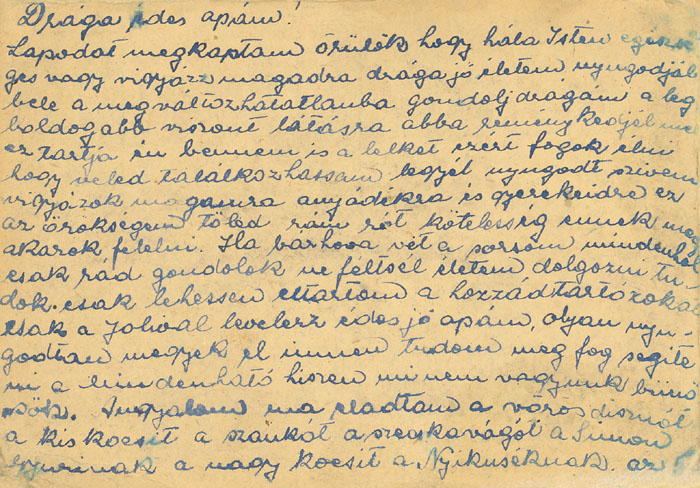 Drága édes apám!
Lapodat megkaptam örülök hogy hála Isten egész
ges vagy vigyázz magadra drága jó életem nyugodjál
bele a megváltozhatatlanba gondolj drágám a leg
boldogabb viszont látásra abba reménykedjél
ez tartja én bennem is a lelket ezért fogok élni
hogy veled találkozhassam legyél nyugodt szivem
vigyázok magamra anyádékra és gyerekeidre ez
az örökségem töled rám rót kötelesség ennek meg
akarok felelni. Ha bárhova vét a sorsom mindenhol
csak rád gondolok ne féltsél életem dolgozni tu-
dok. csak lehessen eltartom a hozzádtartózókat
csak a Jolival levelezz édes jó apám, olyan nyu-
godtan megyek el innen tudom meg fog segite
ni a mindenható hiszen mi nem vagyunk bünö
sök. Angyalom ma eladtam a vörös disznót
a kis kocsit a szánkót a szecskavágót a Simon
Gyurinak a nagy kocsit a Nyikuséknak. az